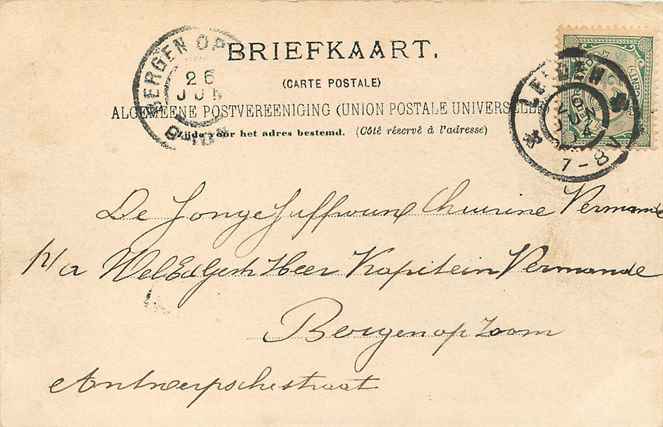 BRIEFKAART.
(CARTE POSTALE)
ALGEMEENE POSTVEREENIGING (UNION POSTALE UNIVERSELLE)
Zijde voor het adres bestemd. (Côté réservé à l'adresse)
BERGEN OP
26
JUN
26
JUN
4
7-8V
De Jonge Juffrouw Vermande
p/a WelEdGestr Heer Kapitein Vermande
Bergen op Zoom
Antwerpschestraat